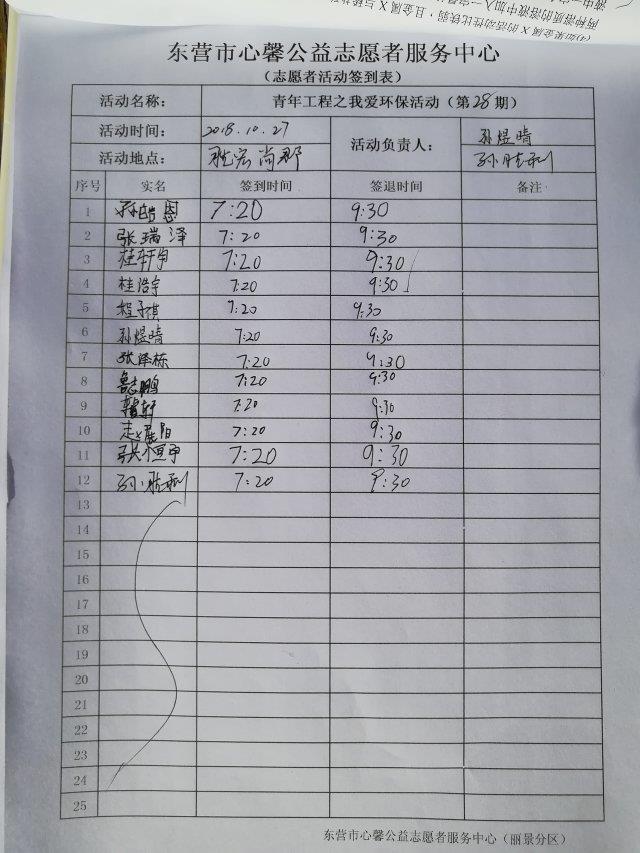 (4)如果金属 X 的活动性比铁弱，且金属 X 与稀
两种溶质的溶液中加入一定
东营市心馨公益志愿者服务中心
（志愿者活动签到表）
活动名称： 青年工程之我爱环保活动（第28期）
活动时间： 2018.10.27 活动负责人： 孙煜晴
活动地点： 胜宏尚郡 孙胜利
序号 实名 签到时间 签退时间 备注
1 孙皓恩 7:20 9:30
2 张瑞泽 7:20 9:30
3 桂轩宇 7:20 9:30
4 桂浩宇 7:20 9:30
5 程子祺 7:20 9:30
6 孙煜晴 7:20 9:30
7 张泽栋 7:20 9:30
8 鲁志鹏 7:20 9:30
9 7:20 9:30
10 7:20 9:30
11 张恒宇 7:20 9:30
12 孙胜利 7:20 9:30
13
14
15
16
17
18
19
20
21
22
23
24
25
东营市心馨公益志愿者服务中心（丽景分区）